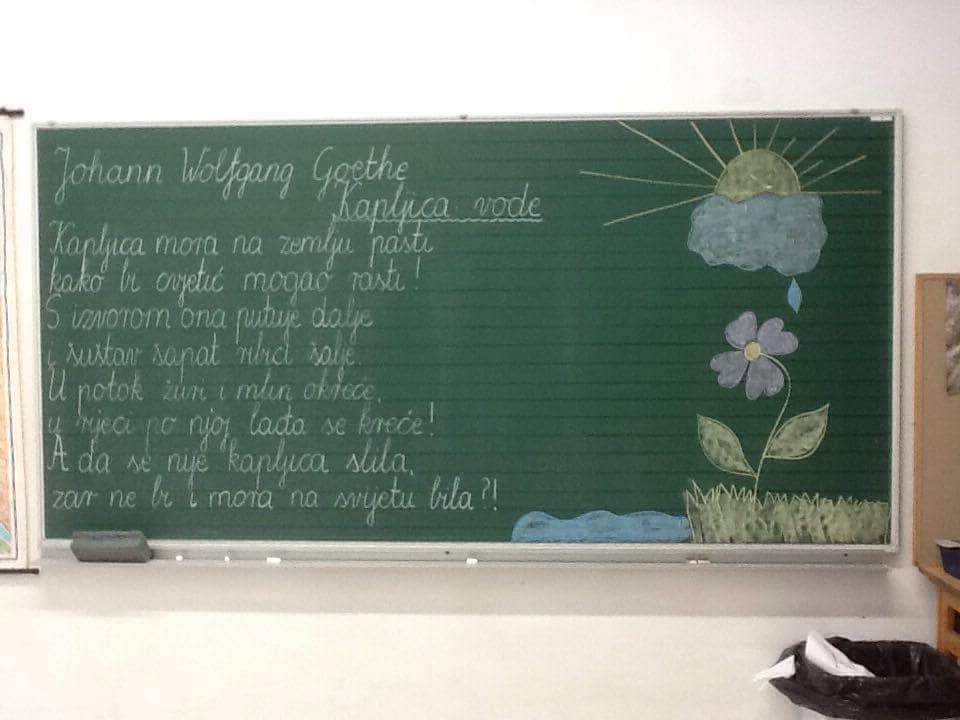 Johann Wolfgang Goethe
Kapljica vode
Kapljica mora na zemlju pasti
kako bi cvjetić mogao rasti!
S izvorom ona putuje dalje
i šustav šapat ribici šalje.
U potok žuri i mlin okreće,
u rijeci po njoj lađa se kreće!
A da se nije kapljica slila,
zar ne bi i mora na svijetu bila?!